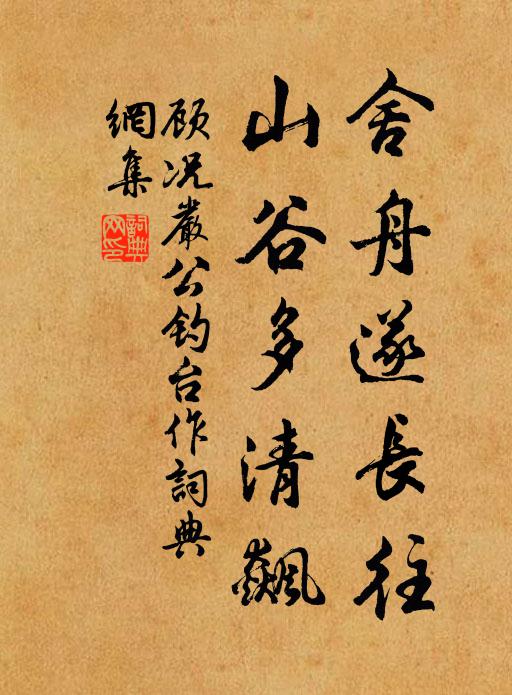 舍舟遂長往
山谷多清飆
顾况嚴公钓台作詞典
網集
詞典
网印